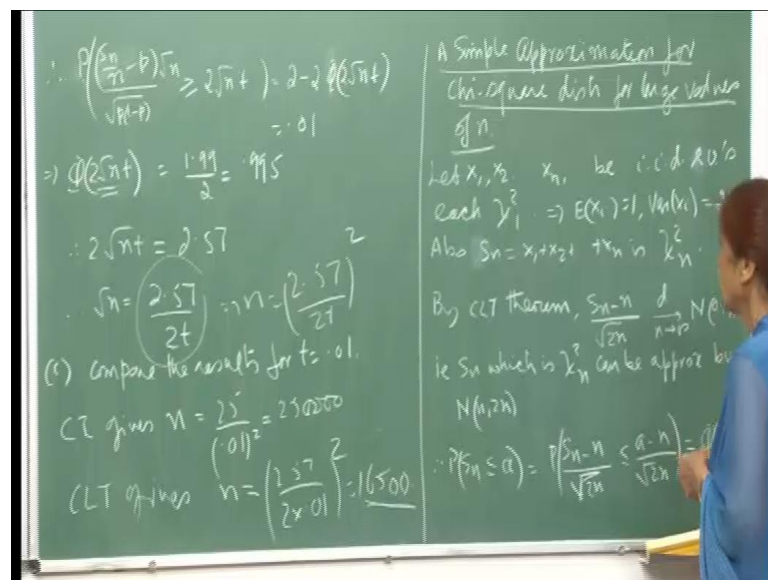 ∴ P((Sn/n − p)√n / √p(1−p) ≥ 2√n t) = 2 − 2Φ(2√n t)
= .01
⇒ Φ(2√n t) = 1.99/2 = .995
∴ 2√n t = 2.57
∴ √n = 2.57/2t ⇒ n = (2.57/2t)²
(c) Compare the results for t = .01.
CI gives n = 25/(.01)² = 250000
CLT gives n = (2.57/2×.01)² = 16500
A Simple Approximation for
Chi-square distn for large values
of n.
Let x₁, x₂ xₙ, be i.i.d. RV's
each χ²₁ ⇒ E(xᵢ) = 1, Var(xᵢ) =
Also Sn = x₁+x₂+ +xₙ is χ²ₙ.
By CLT theorem, Sn−n/√2n d→ n→∞ N(
ie Sn which is χ²ₙ can be approx by
N(n, 2n)
∴ P(Sn ≤ a) = P(Sn−n/√2n ≤ a−n/√2n) =